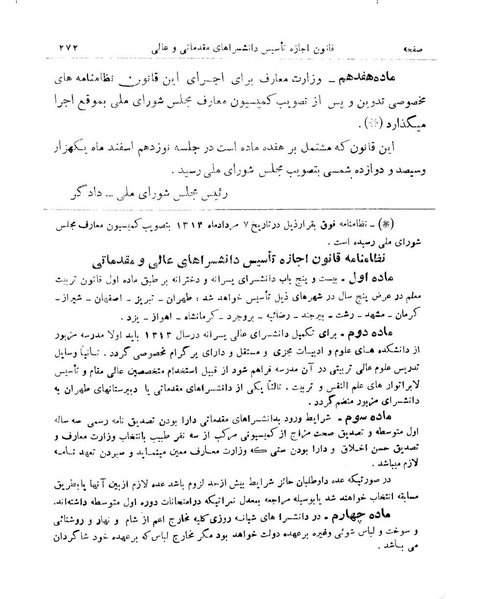 صفحه قانون اجازه تأسیس دانشسراهای مقدماتی و عالی ۲۷۲
ماده هفدهم ـ وزارت معارف برای اجرای این قانون نظامنامه های
مخصوصی تدوین و پس از تصویب کمیسیون معارف مجلس شورای ملی بموقع اجرا
میگذارد (※).
این قانون که مشتمل بر هفده ماده است در جلسه نوزدهم اسفند ماه یکهزار
وسیصد و دوازده شمسی بتصویب مجلس شورای ملی رسید.
رئیس مجلس شورای ملی ـ دادگر
(※) ـ نظامنامه فوق بقرارذیل درتاریخ ۷ مردادماه ۱۳۱۳ بتصویب کمیسیون معارف مجلس
شورای ملی رسیده است.
نظامنامه قانون اجازه تأسیس دانشسراهای عالی و مقدماتی
ماده اول ـ بیست و پنج باب دانشسرای پسرانه و دخترانه بر طبق ماده اول قانون تربیت
معلم در عرض پنج سال در شهرهای ذیل تأسیس خواهد شد : طهران ـ تبریز ـ اصفهان ـ شیراز ـ
کرمان ـ مشهد ـ رشت ـ بیرجند ـ رضائیه ـ بروجرد ـ کرمانشاه ـ اهواز ـ یزد.
ماده دوم ـ برای تکمیل دانشسرای عالی پسرانه درسال ۱۳۱۳ باید اولا مدرسه مزبور
از دانشکده های علوم و ادبیات مجزی و مستقل و دارای پرگرام مخصوصی گردد. ثانیاً وسایل
تدریس علوم عالی تربیتی در آن مدرسه فراهم شود از قبیل استخدام متخصصین عالی مقام و تأسیس
لابراتوار های علم النفس و تربیت. ثالثاً یکی از دانشسراهای مقدماتی یا دبیرستانهای طهران به
دانشسرای مزبور منضم گردد.
ماده سوم ـ شرایط ورود بدانشسراهای مقدماتی دارا بودن تصدیق نامه رسمی سه ساله
اول متوسطه و تصدیق صحت مزاج از کمیسیونی مرکب از سه نفر طبیب بانتخاب وزارت معارف و
تصدیق حسن اخلاق و دارا بودن سنی که وزارت معارف معین مینماید و سپردن تعهد نامه
لازم میباشد.
در صورتی که عده داوطلبان حائز شرایط بیش ازحد لزوم باشد عده لازم ازبین آنها یابطریق
مسابقه انتخاب خواهند شد یابوسیله مراجعه بمعدل نمراتیکه درامتحانات دوره اول متوسطه داشته‌اند.
ماده چهارم ـ در دانشسرا های شبانه روزی کلیه مخارج اعم از شام و نهار و روشنائی
و سوخت و لباس شوئی وغیره برعهده دولت خواهد بود مگر مخارج لباس که برعهده خود شاگردان
می باشد.